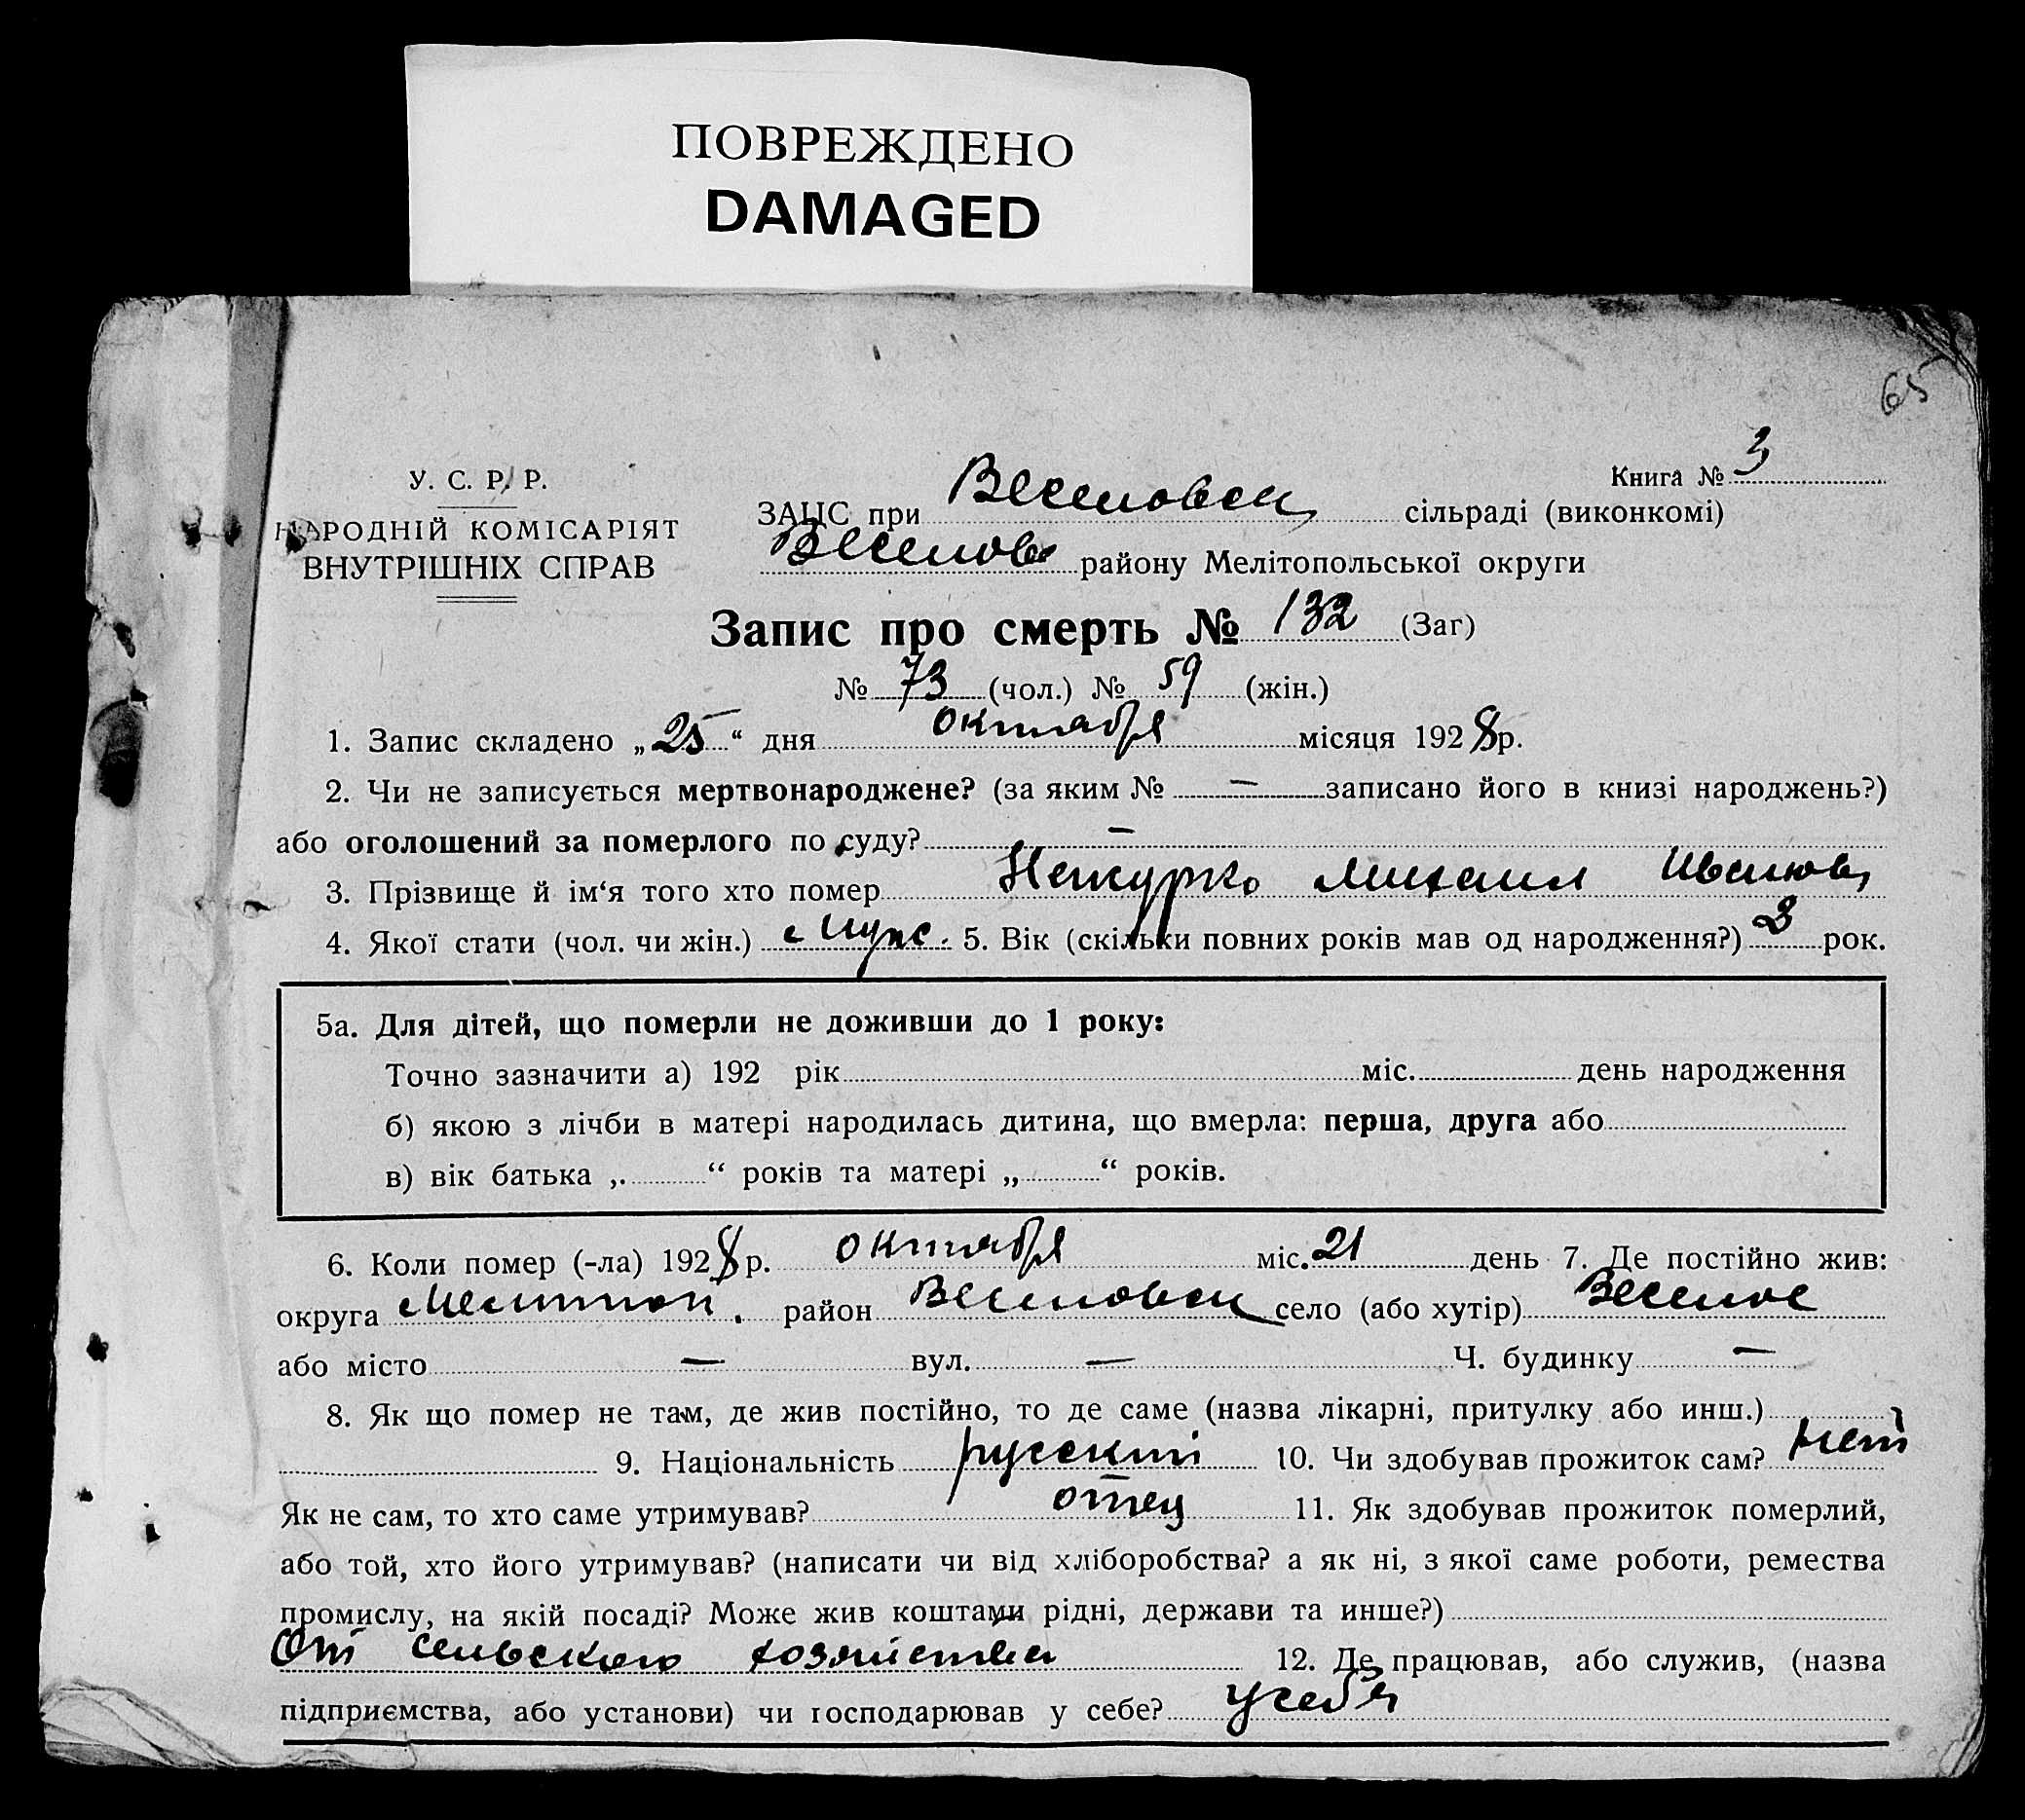 ПОВРЕЖДЕНО
DAMAGED
65
Книга № 3
У. С. Р. Р.
НАРОДНІЙ КОМІСАРІЯТ
ВНУТРІШНІХ СПРАВ
ЗАЦС при Веселовск сільраді (виконкомі)
Веселовс району Мелітопольської округи
Запис про смерть № 132 (Заг)
№ 73 (чол.) № 59 (жін.)
1. Запис складено „25“ дня октября місяця 1928 р.
2. Чи не записується мертвонароджене? (за яким № — записано його в книзі народжень?)
або оголошений за померлого по суду? —
3. Прізвище й ім‘я того хто помер Михаил Иванов
4. Якої стати (чол. чи жін.) Муж. 5. Вік (скільки повних років мав од народження?) 3 рок.
5а. Для дітей, що померли не доживши до 1 року:
Точно зазначити а) 192 рік міс. день народження
б) якою з лічби в матері народилась дитина, що вмерла: перша, друга або
в) вік батька „ “ років та матері „ “ років.
6. Коли помер (-ла) 1928 р. октября міс. 21 день 7. Де постійно жив:
округа Мелитоп. район Веселовск село (або хутір) Веселое
або місто — вул. — Ч. будинку —
8. Як що помер не там, де жив постійно, то де саме (назва лікарні, притулку або инш.)
9. Національність русский 10. Чи здобував прожиток сам? нет
Як не сам, то хто саме утримував? отец 11. Як здобував прожиток померлий,
або той, хто його утримував? (написати чи від хліборобства? а як ні, з якої саме роботи, ремества
промислу, на якій посаді? Може жив коштами рідні, держави та инше?)
От сельского хозяйства 12. Де працював, або служив, (назва
підприємства, або установи) чи господарював у себе? у себя